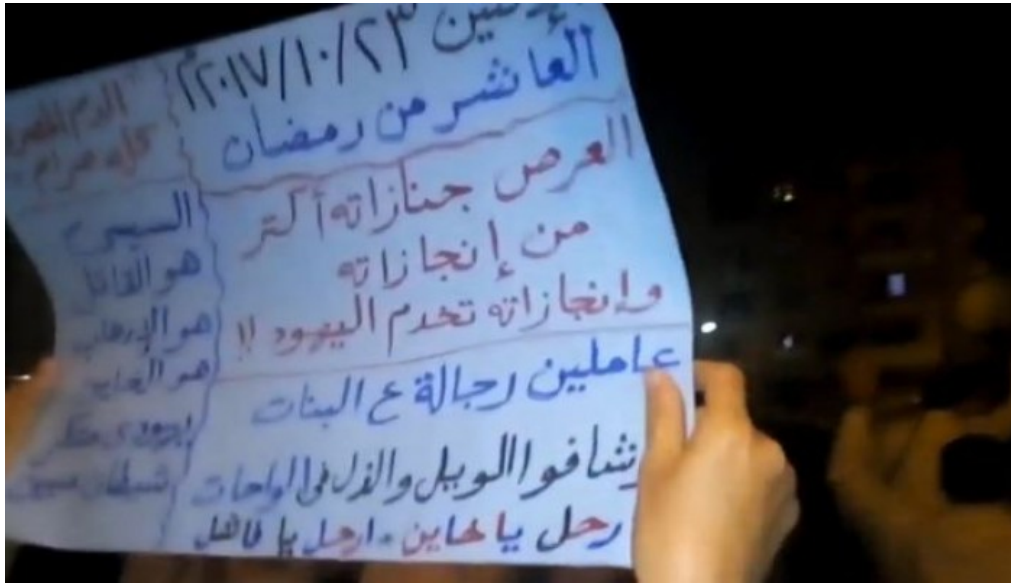 الإثنين ٢٠١٧/١٠/٢٣م
العاشر من رمضان
العرص جنازاته أكتر
من إنجازاته
وإنجازاته تخدم اليهود !!
عاملين رجالة ع البنات
وشافوا الويل والذل فى الواحات
رحل يا خاين - ارحل يا فاشل
الدم المصرى
كله حرام
السيسى
هو القاتل
هو الإرهابى
هو